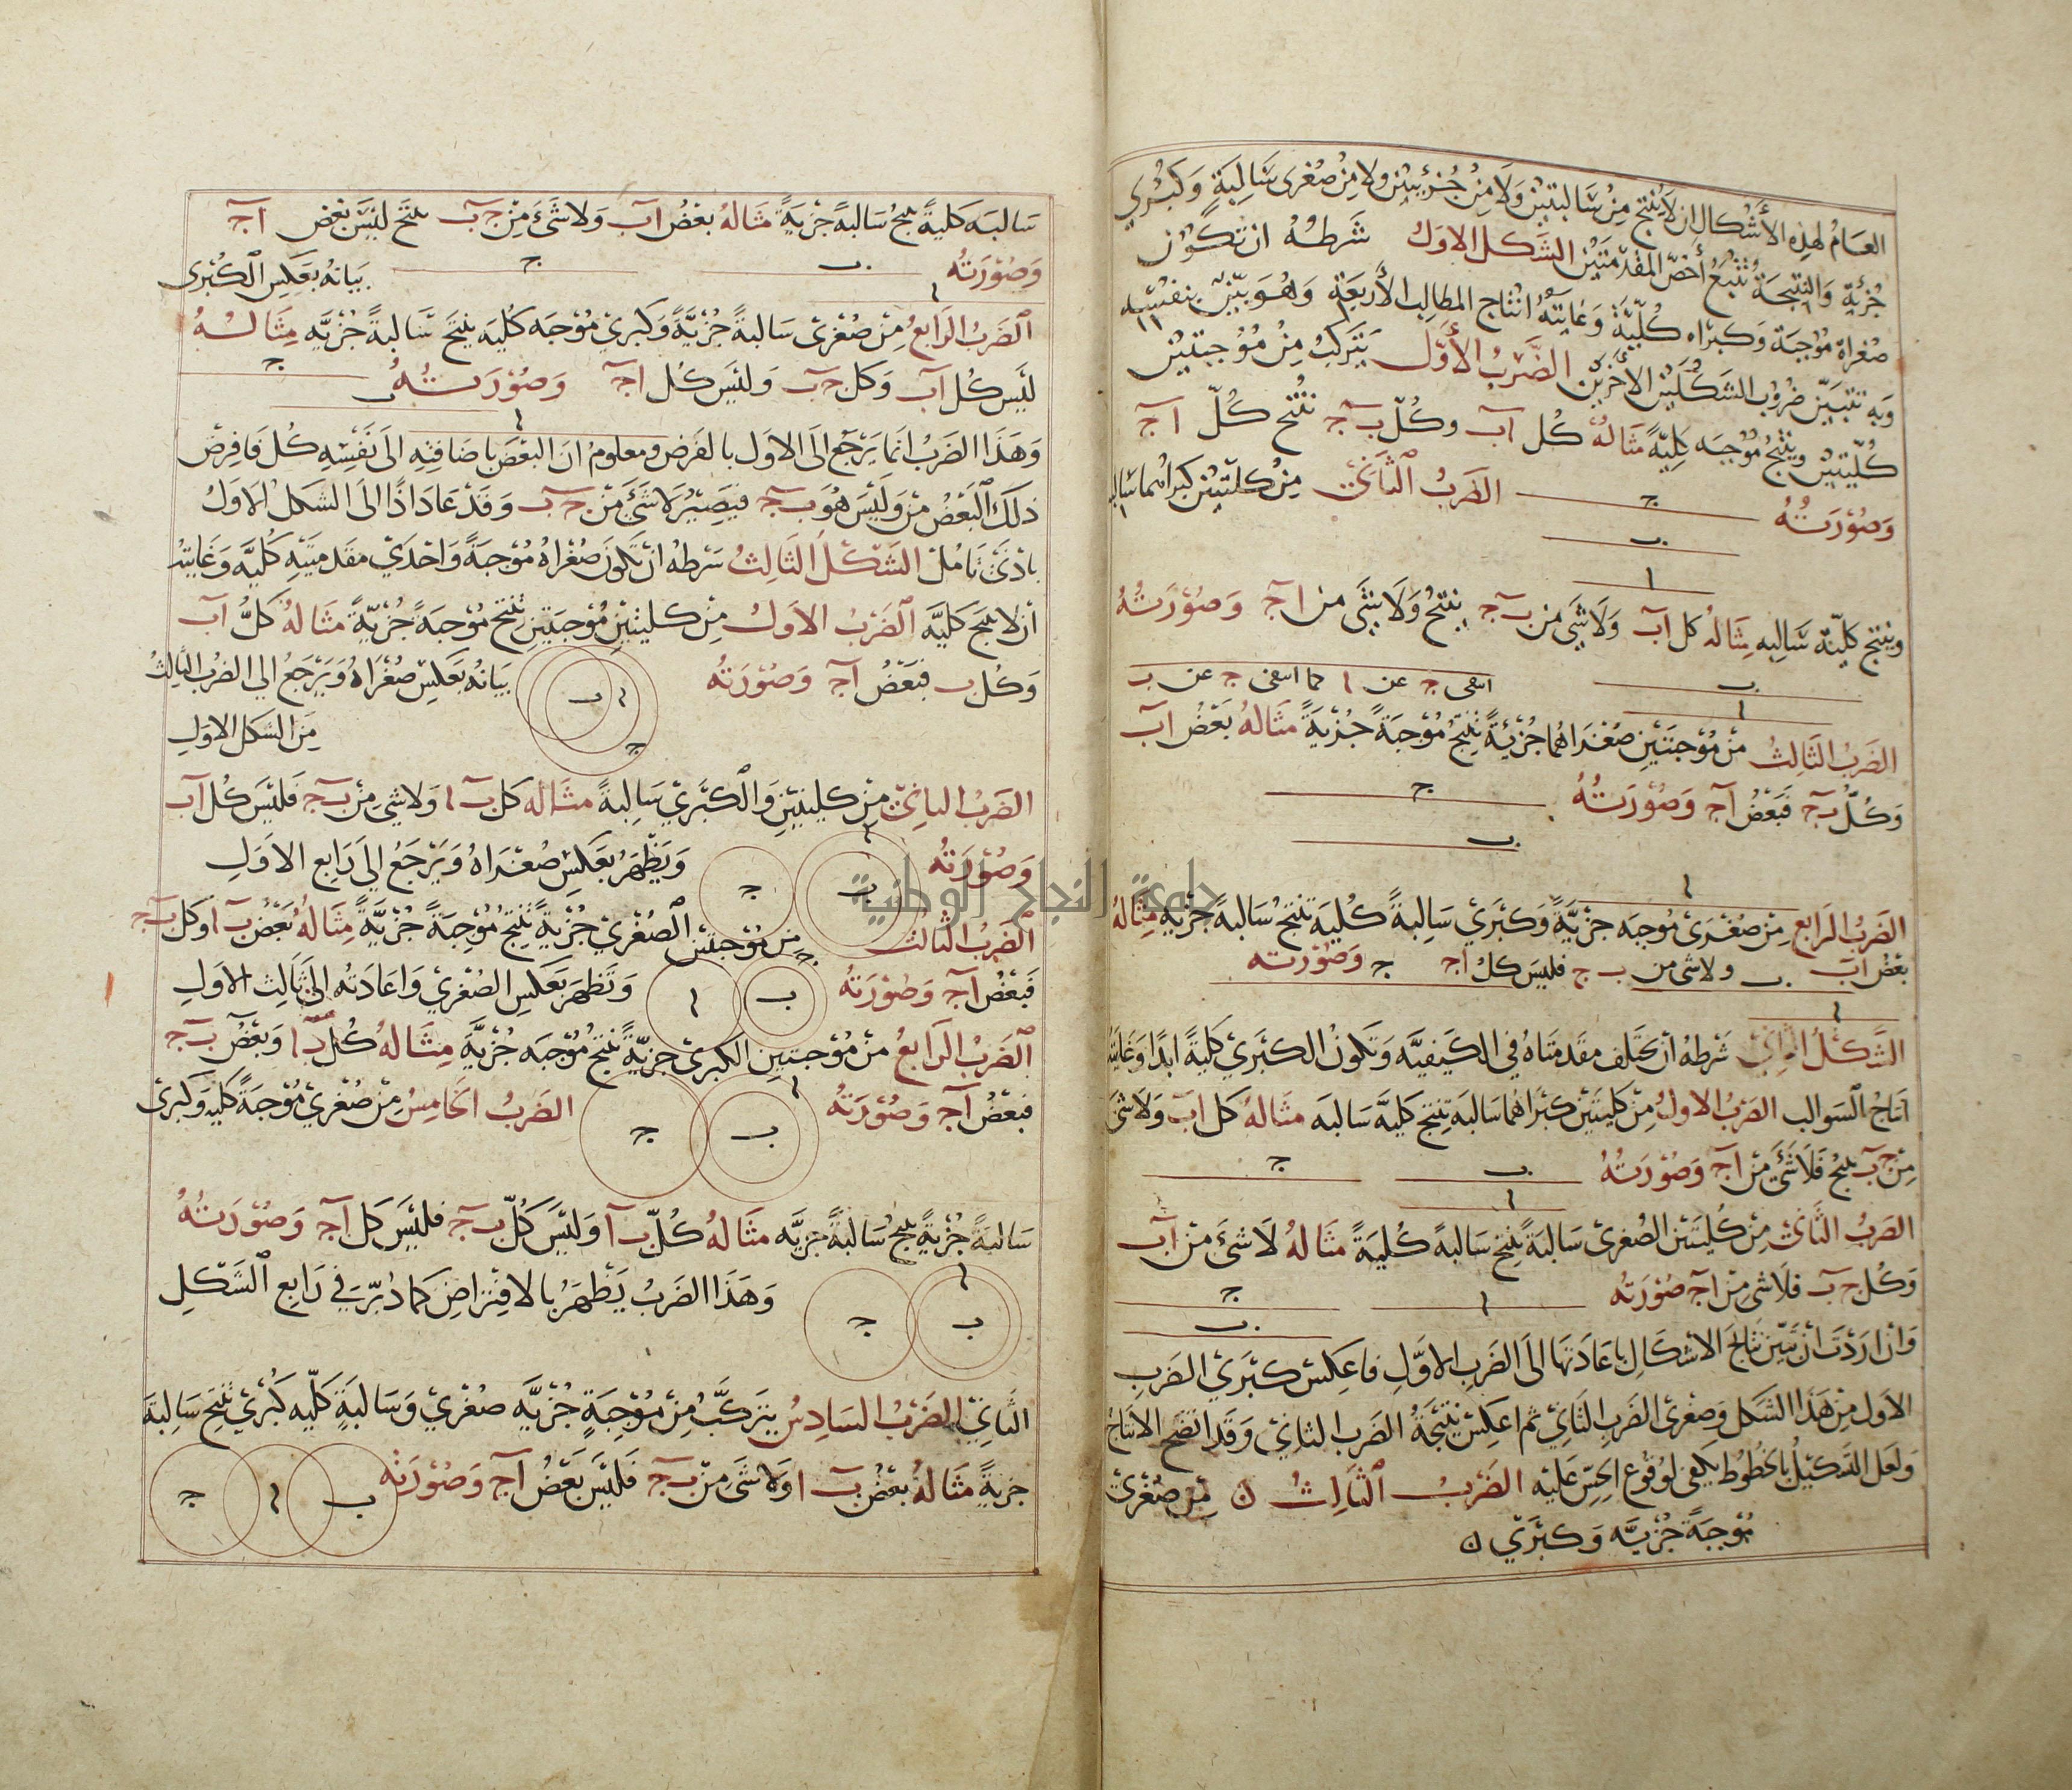 العام لهذه الأشكال ان لا ينتج من سالبتين ولا من جزئيتين ولا من صغرى سالبة وكبرى
جزئية والنتيجة تتبع أخس المقدمتين الشكل الاول شرطه ان تكون
صغراه موجبة وكبراه كلية وغايته انتاج المطالب الأربعة وهو بين بنفسه
وبه تتبين ضروب الشكلين الأخرين الضرب الأول يتركب من موجبتين
كليتين وينتج موجبه كلية مثاله كل اب وكل ب ج ينتج كل ا ج
وصورته ج ب ا الضرب الثانى من كليتين كبراهما سالبة
وينتج كلية سالبه مثاله كل اب ولا شى من ب ج ينتج ولا شى من ا ج وصورته
ب ا انتفى ج عن ا كما انتفى ج عن ب
الضرب الثالث من موجبتين صغراهما جزئية ينتج موجبة جزية مثاله بعض اب
وكل ب ج فبعض ا ج وصورته ج ب ا
الضرب الرابع من صغرى موجبه جزية وكبرى سالبة كلية تنتج سالبة جزيه مثاله
بعض اب ولا شى من ب ج فليس كل ا ج وصورته ج ب ا
الشكل الثاني شرطه ان يختلف مقدمتاه في الكيفيه وتكون الكبرى كلية ابدا وغايته
انتاج السوالب الضرب الاول من كليتين كبراهما سالبه ينتج كليه سالبه مثاله كل اب ولا شى
من ج ب ينتج فلا شى من ا ج وصورته ب ج ا
الضرب الثانى من كليتين الصغرى سالبة ينتج سالبة كلية مثاله لا شى من اب
وكل ج ب فلا شى من ا ج صورته ا ج ب
وان اردت ان تبين نتائج الاشكال باعادتها الى الضرب الاول فاعكس كبرى الضرب
الاول من هذا الشكل وصغرى الضرب الثاني ثم اعكس نتيجة الضرب الثاني وقد اتضح الانتاج
ولعل التشكيل بالخطوط يكفى لوقوع الحس عليه الضرب الثالث من صغرى
موجبة جزيه وكبرى
سالبه كلية ينتج سالبة جزية مثاله بعض اب ولا شئ من ج ب ينتج ليس بعض ا ج
وصورته ب ج ا بيانه بعكس الكبرى
الضرب الرابع من صغرى سالبة جزية وكبرى موجبه كليه ينتج سالبة جزيه مثاله
ليس كل اب وكل ج ب وليس كل ا ج وصورته ب ج ا
وهذا الضرب انما يرجع الى الاول بالفرض ومعلوم ان البعض باضافته الى نفسه كل فافرض
ذلك البعض من وليس هو ب ج فيصير لا شئ من ج ب وقد عاد اذا الى الشكل الاول
بادنى تامل الشكل الثالث شرطه ان تكون صغراه موجبة واحدى مقدمتيه كليه وغايته
ان لا ينتج كليه الضرب الاول من كليتين موجبتين ينتج موجبة جزية مثاله كل اب
وكل ب فبعض ا ج وصورته ا ب ج بيانه بعكس صغراه ويرجع الي الضرب الثالث
من الشكل الاول
الضرب الثاني من كليتين والكبرى سالبة مثاله كل ب ا ولا شى من ب ج فليس كل اب
وصورته ا ب ج ويظهر بعكس صغراه ويرجع الي رابع الاول
الضرب الثالث من موجبتين الصغرى جزية ينتج موجبة جزية مثاله بعض ب ا وكل ب ج
فبعض ا ج وصورته ج ب ا وتظهر بعكس الصغرى واعادته الى ثالث الاول
الضرب الرابع من موجبتين الكبرى جزية ينتج موجبه جزية مثاله كل ب ا وبعض ب ج
فبعض ا ج وصورته ا ب ج الضرب الخامس من صغرى موجبة كليه وكبرى
سالبة جزية ينتج سالبة جزيه مثاله كل ب ا وليس كل ب ج فليس كل ا ج وصورته
ا ب ج وهذا الضرب يظهر بالافتراض كما دبر في رابع الشكل
الثاني الضرب السادس يتركب من موجبة جزيه صغرى وسالبة كليه كبرى ينتج سالبة
جزية مثاله بعض ب ا ولا شى من ب ج فليس بعض ا ج وصورته ب ا ج
جامعة النجاح الوطنية